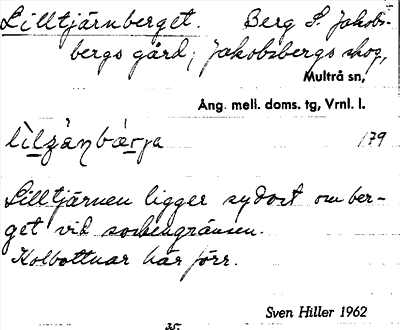 Lilltjärnberget. Berg S. Jakobs-
bergs gård, Jakobsbergs skog,
Multrå sn,
Ång. mell. doms. tg, Vrnl. l.
179
Lilltjärnen ligger sydost om ber-
get vid sockengränsen.
Kolbottnar här förr.
Sven Hiller 1962
35.